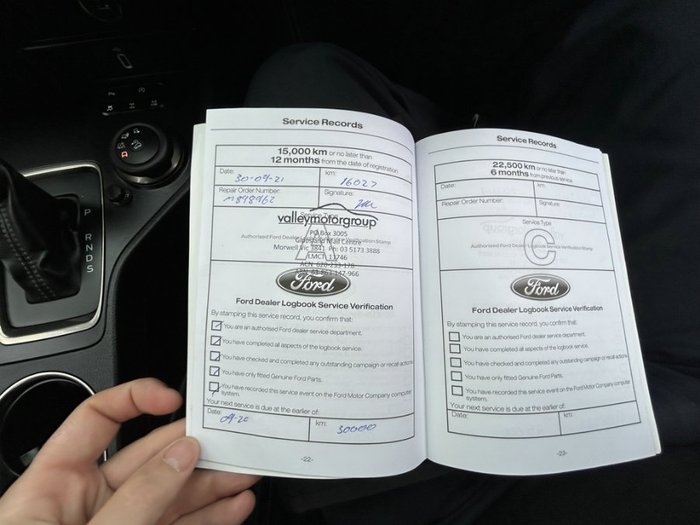 P
R
N
D
S
Service Records
15,000 km or no later than
12 months from the date of registration
Date: 30-09-21
km: 16027
Repair Order Number: M898962
Signature:
Service Type
valleymotorgroup
A
PO Box 3005
Gippsland Mail Centre
Morwell Vic 3841 Ph: 03 5173 3888
LMCT 11746
Ford
Ford Dealer Logbook Service Verification
By stamping this service record, you confirm that:
You are an authorised Ford dealer service department.
You have completed all aspects of the logbook service.
You have checked and completed any outstanding campaign or recall actions.
You have only fitted Genuine Ford Parts.
You have recorded this service event on the Ford Motor Company computer
system.
Your next service is due at the earlier of:
Date: 09-20
km: 30000
-22-
Service Records
22,500 km or no later than
6 months from previous service.
Date:
km:
Repair Order Number:
Signature:
Service Type
C
Authorised Ford Dealer Logbook Service Verification Stamp
Ford
Ford Dealer Logbook Service Verification
By stamping this service record, you confirm that:
You are an authorised Ford dealer service department.
You have completed all aspects of the logbook service.
You have checked and completed any outstanding campaign or recall actions
You have only fitted Genuine Ford Parts.
You have recorded this service event on the Ford Motor Company computer
system.
Your next service is due at the earlier of:
Date:
km:
-23-